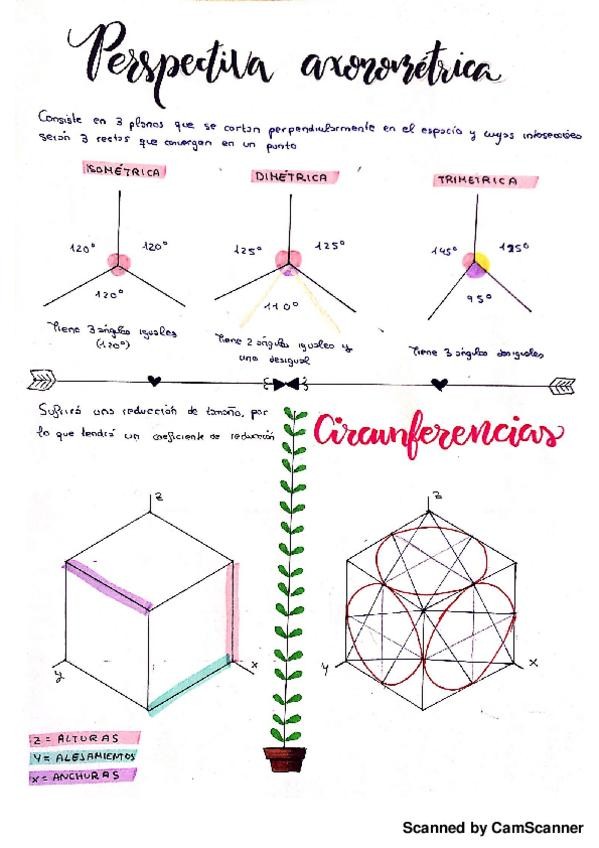 Perspectiva axonométrica
Consiste en 3 planos que se cortan perpendicularmente en el espacio y cuyas intersecciones
serán 3 rectas que convergen en un punto
ISOMÉTRICA
DIMÉTRICA
TRIMETRICA
120º
120º
120º
125º
125º
110º
145º
125º
95º
Tiene 3 ángulos iguales
(120º)
Tiene 2 ángulos iguales y
uno desigual
Tiene 3 ángulos desiguales
Sufrirá una reducción de tamaño, por
lo que tendrá un coeficiente de reducción
Circunferencias
z
y
x
z
y
x
Z = ALTURAS
Y = ALEJAMIENTOS
X = ANCHURAS
Scanned by CamScanner